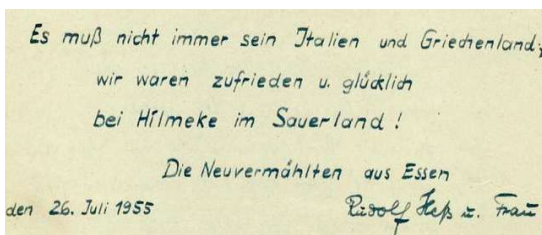 Es muß nicht immer sein Italien und Griechenland,
wir waren zufrieden u. glücklich
bei Hilmeke im Sauerland !
Die Neuvermählten aus Essen
den 26. Juli 1955 Rudolf Heß u. Frau